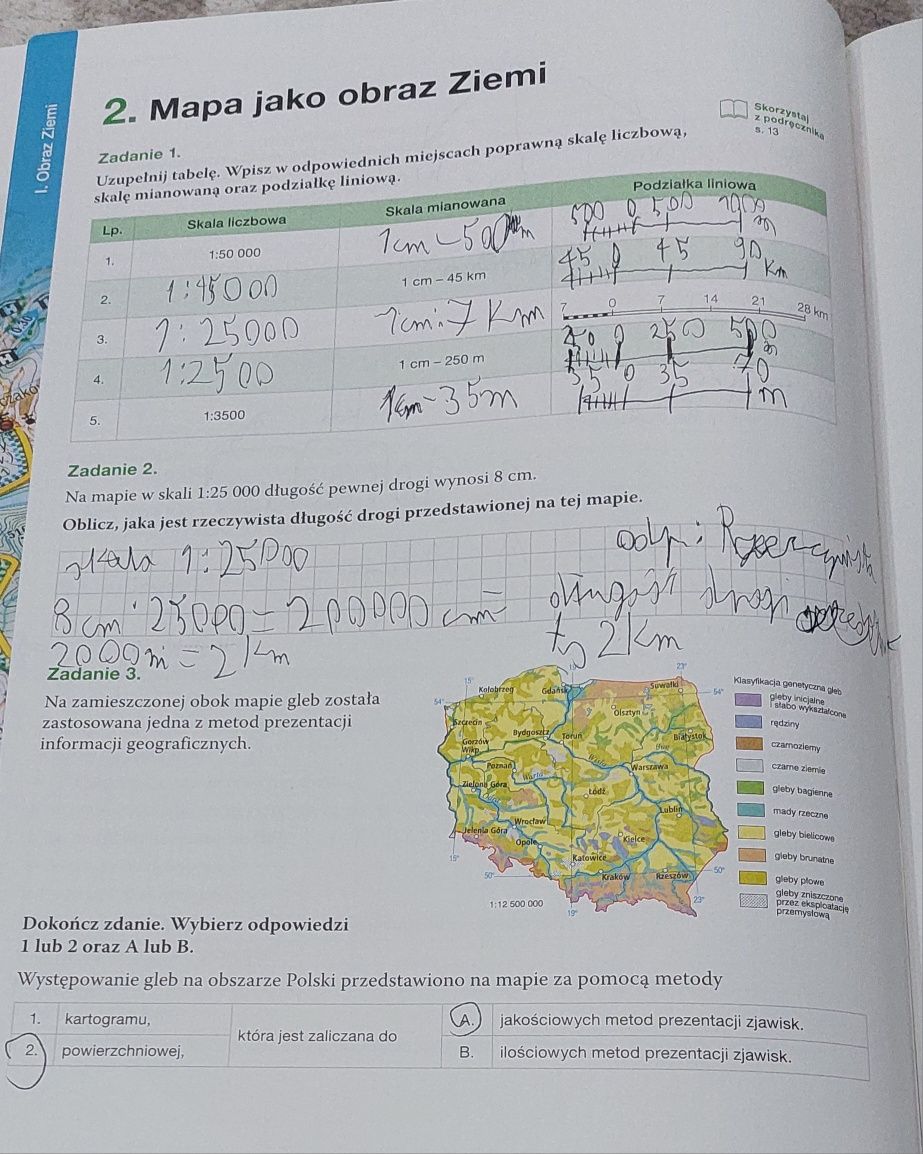 I. Obraz Ziemi
2. Mapa jako obraz Ziemi
Skorzystaj
z podręcznika
s. 13
Zadanie 1.
Uzupełnij tabelę. Wpisz w odpowiednich miejscach poprawną skalę liczbową,
skalę mianowaną oraz podziałkę liniową.
Lp. Skala liczbowa Skala mianowana Podziałka liniowa
1. 1:50 000 1cm – 500 m 500 0 500 1000 m
2. 1:45000 1 cm – 45 km 45 0 45 90 km
3. 1:25000 1cm: 7 Km 7 0 7 14 21 28 km
4. 1:2500 1 cm – 250 m 0 250 500 m
5. 1:3500 1cm – 35m 35 0 35 70 m
Zadanie 2.
Na mapie w skali 1:25 000 długość pewnej drogi wynosi 8 cm.
Oblicz, jaka jest rzeczywista długość drogi przedstawionej na tej mapie.
skala 1:25000 odp: Rzeczywista
8 cm · 25000 = 200000 cm = długość drogi
2000 m = 2 km to 2 km
Zadanie 3.
Na zamieszczonej obok mapie gleb została
zastosowana jedna z metod prezentacji
informacji geograficznych.
15° 19° 23°
54° 54°
Kołobrzeg Gdańsk Suwałki
Szczecin Olsztyn
Gorzów Wlkp. Bydgoszcz Toruń Białystok
Bug
Wisła
Poznań Warta Warszawa
Zielona Góra Łódź
Odra Lublin
Wrocław
Jelenia Góra Opole Kielce
15° Katowice
50° Kraków Rzeszów 50°
1:12 500 000 19° 23°
Klasyfikacja genetyczna gleb
gleby inicjalne
i słabo wykształcone
rędziny
czarnoziemy
czarne ziemie
gleby bagienne
mady rzeczne
gleby bielicowe
gleby brunatne
gleby płowe
gleby zniszczone
przez eksploatację
przemysłową
Dokończ zdanie. Wybierz odpowiedzi
1 lub 2 oraz A lub B.
Występowanie gleb na obszarze Polski przedstawiono na mapie za pomocą metody
1. kartogramu, A. jakościowych metod prezentacji zjawisk.
która jest zaliczana do
2. powierzchniowej, B. ilościowych metod prezentacji zjawisk.